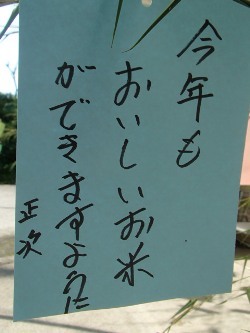 今年も
おいしいお米
ができますように
正次